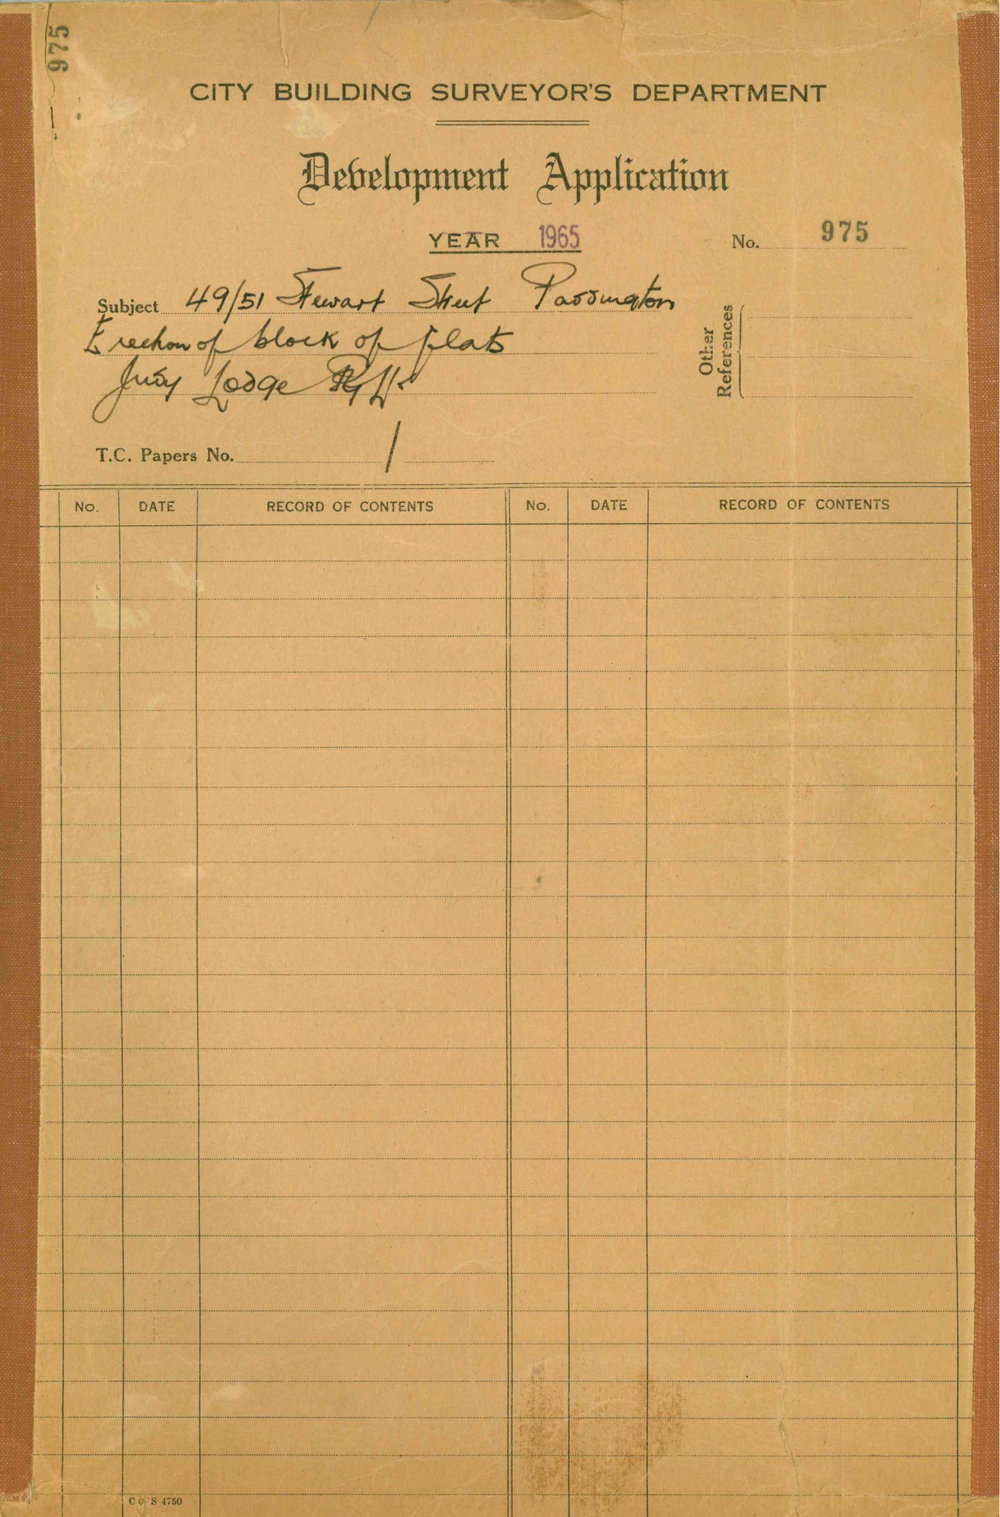 975
CITY BUILDING SURVEYOR'S DEPARTMENT
Development Application
YEAR 1965
No. 975
Subject 49/51 Stewart Street Paddington
Erection of block of flats
Judy Lodge P/L
Other References
T.C. Papers No. /
No. DATE RECORD OF CONTENTS No. DATE RECORD OF CONTENTS
C of S 4750